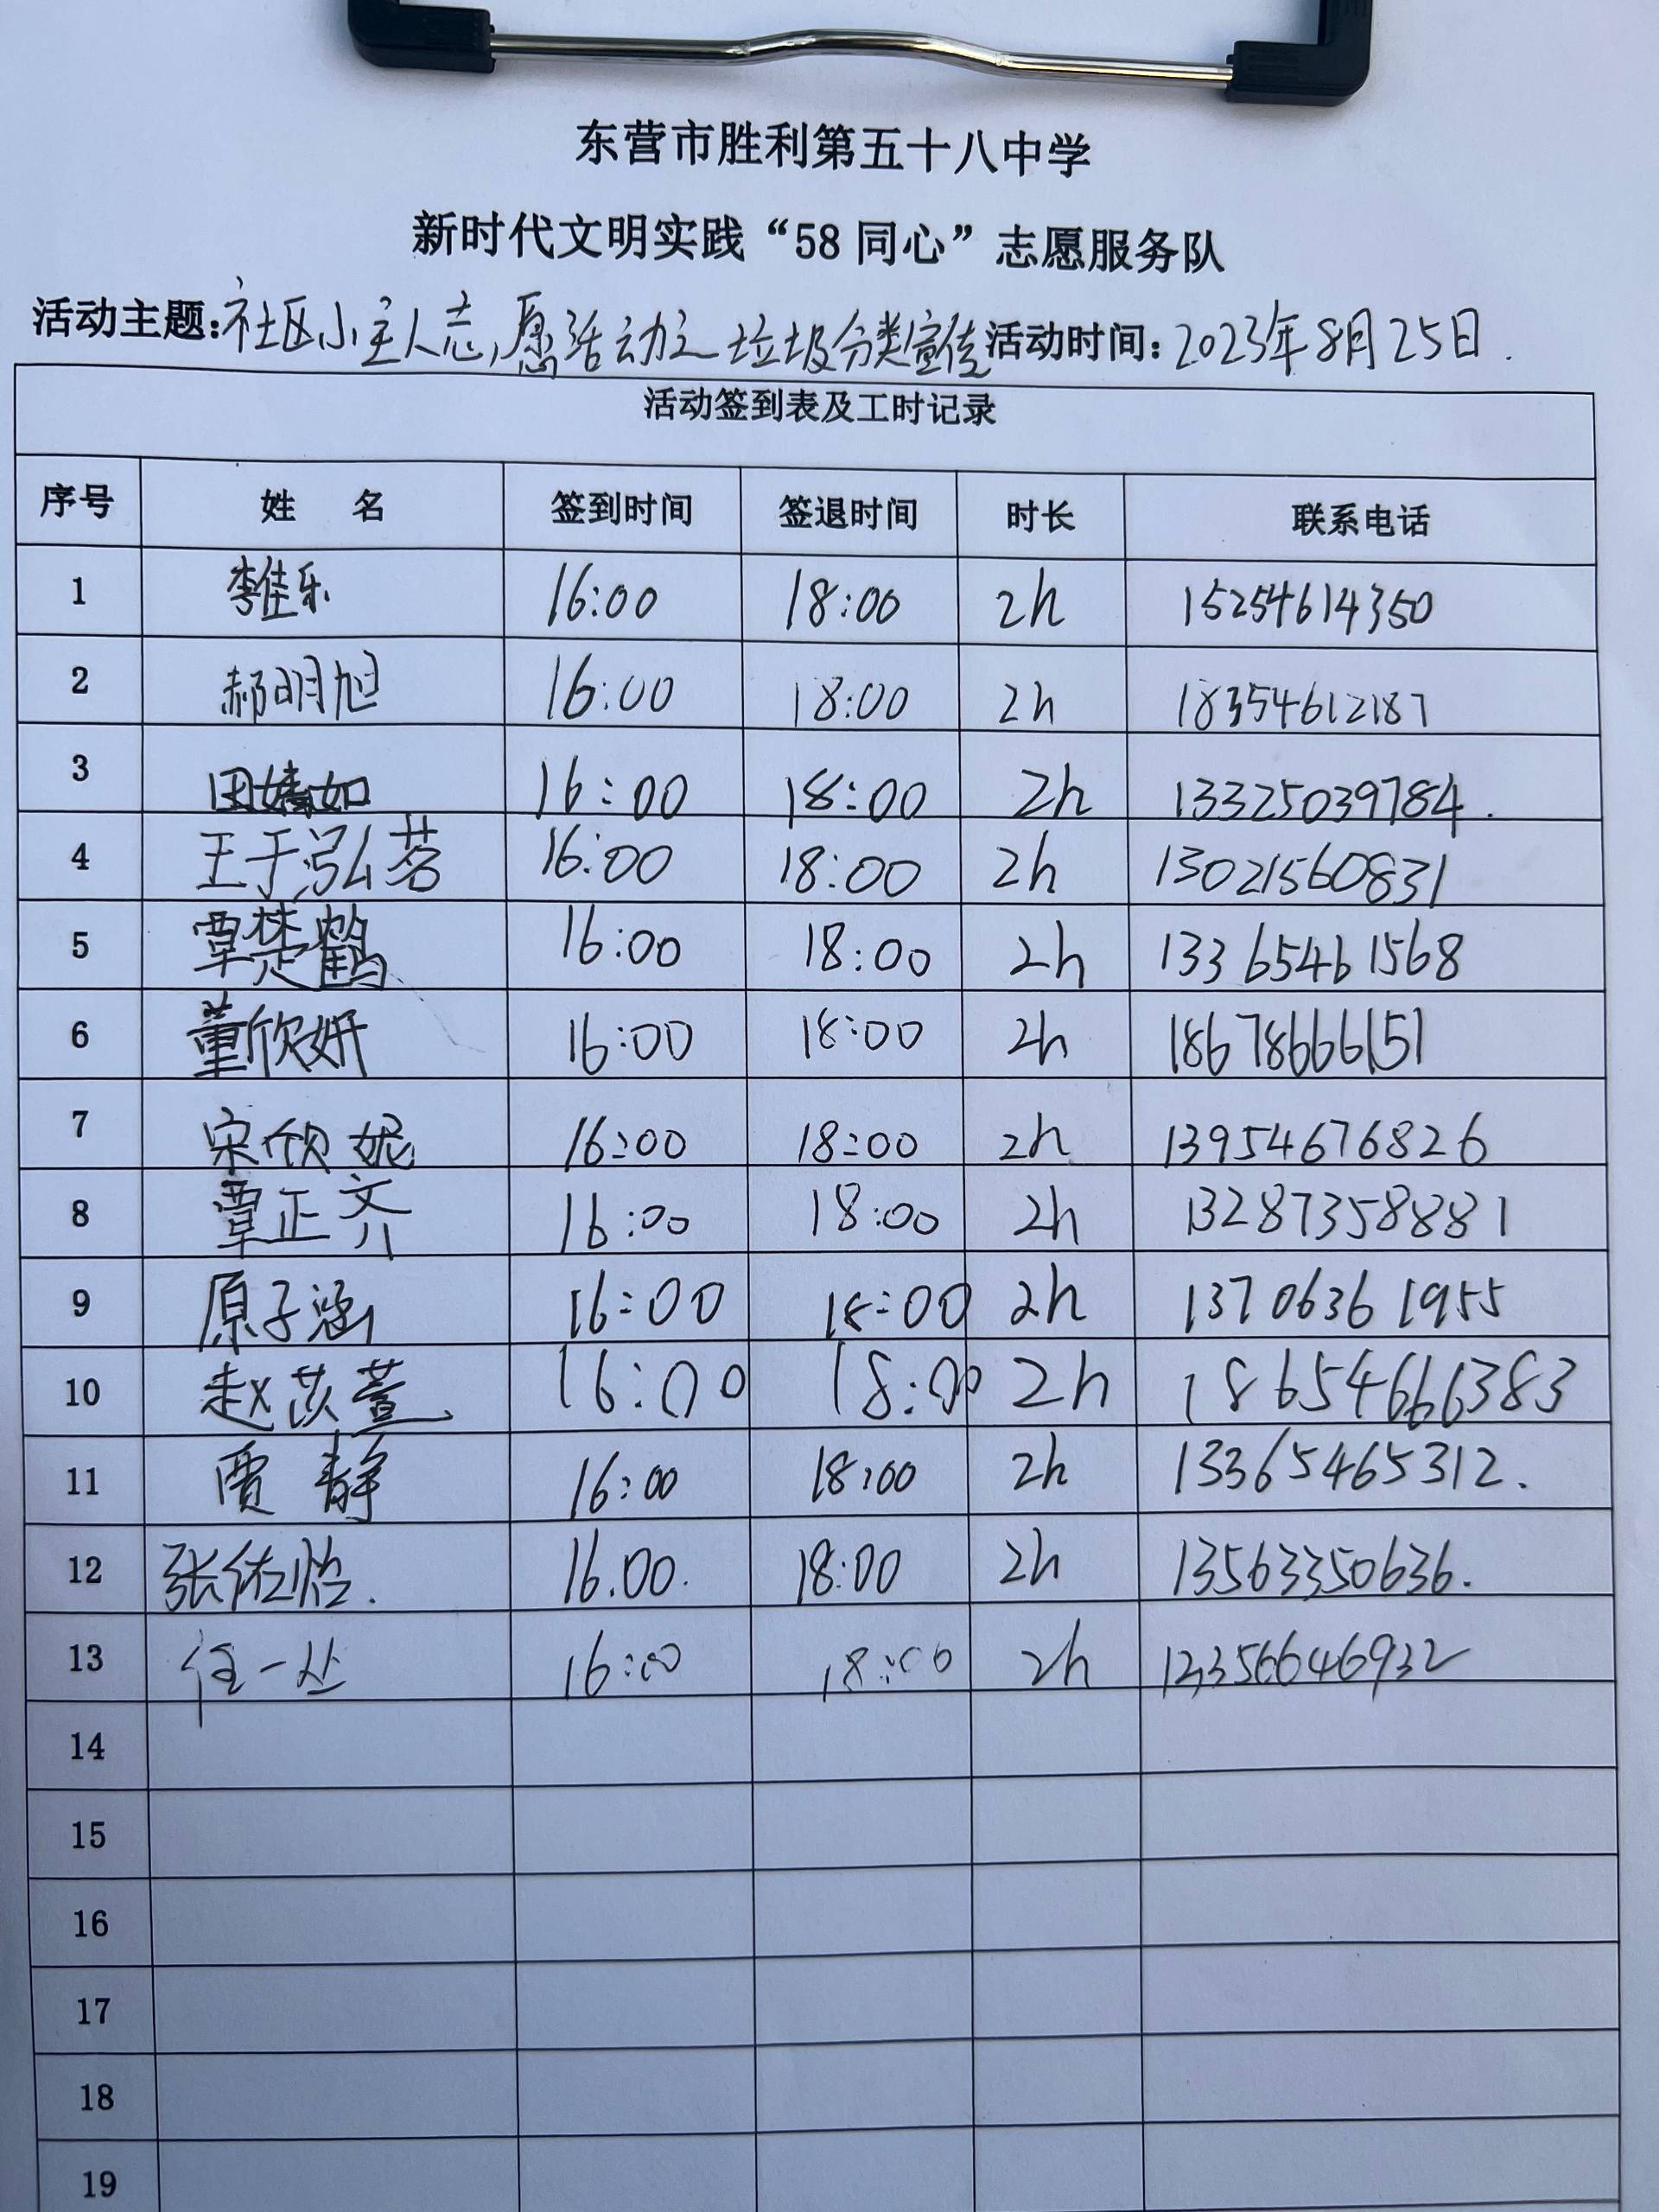 东营市胜利第五十八中学
新时代文明实践“58同心”志愿服务队
活动主题:社区小主人志愿活动之垃圾分类宣传 活动时间:2023年8月25日.
活动签到表及工时记录
序号 姓 名 签到时间 签退时间 时长 联系电话
1 李佳乐 16:00 18:00 2h 15254614350
2 郝明旭 16:00 18:00 2h 18354612187
3 田婧如 16:00 18:00 2h 13325039784.
4 王于泓茗 16:00 18:00 2h 13021560831
5 覃楚鹤 16:00 18:00 2h 13365461568
6 董欣妍 16:00 18:00 2h 18678666151
7 宋欣妮 16:00 18:00 2h 13954676826
8 覃正齐 16:00 18:00 2h 13287358881
9 原子涵 16:00 18:00 2h 13706361955
10 赵苡萱 16:00 18:00 2h 18654666383
11 贾静 16:00 18:00 2h 13365465312.
12 张佑怡. 16.00. 18:00 2h 13563350636.
13 任一 16:00 18:00 2h
14
15
16
17
18
19